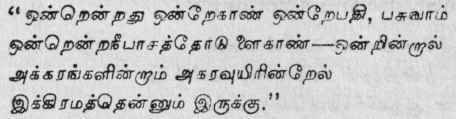 “ஒன்றென்றது ஒன்றேகாண் ஒன்றேபதி, பசுவாம்
ஒன்றென்றநீபாசத்தோடு ஊகாண்—ஒன்றின்றால்
அக்கரங்களின்றாம் அகரவுயிரின்றேல்
இக்கிரமத்தென்னும் இருக்கு.”